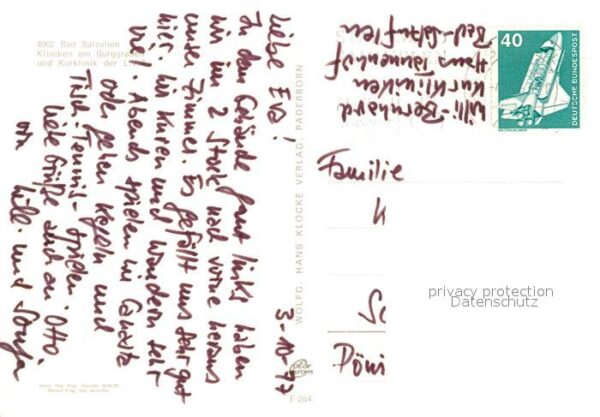 4902 Bad Salzuflen
Kliniken am Burggraben
und Kurklinik der L
Liebe Eva!
3-10-77
In dem Gebäude ganz links haben
wir im 2 Stock nach vorne heraus
unser Zimmer. Es gefällt uns sehr gut
hier. Wir kuren und wandern sehr
viel. Abends spielen wir Canasta
oder gehen Kegeln und
Tisch-Tennis-spielen.
Liebe Grüße auch an Otto
Willi und Sonja
WOLFG. HANS KLOCKE VERLAG, PADERBORN
F 264
Willi-Bernhard
Kurkliniken
Haus Tannenhof
Bad-Salzuflen
40
DEUTSCHE BUNDESPOST
Familie
K
Sc
privacy protection
Datenschutz